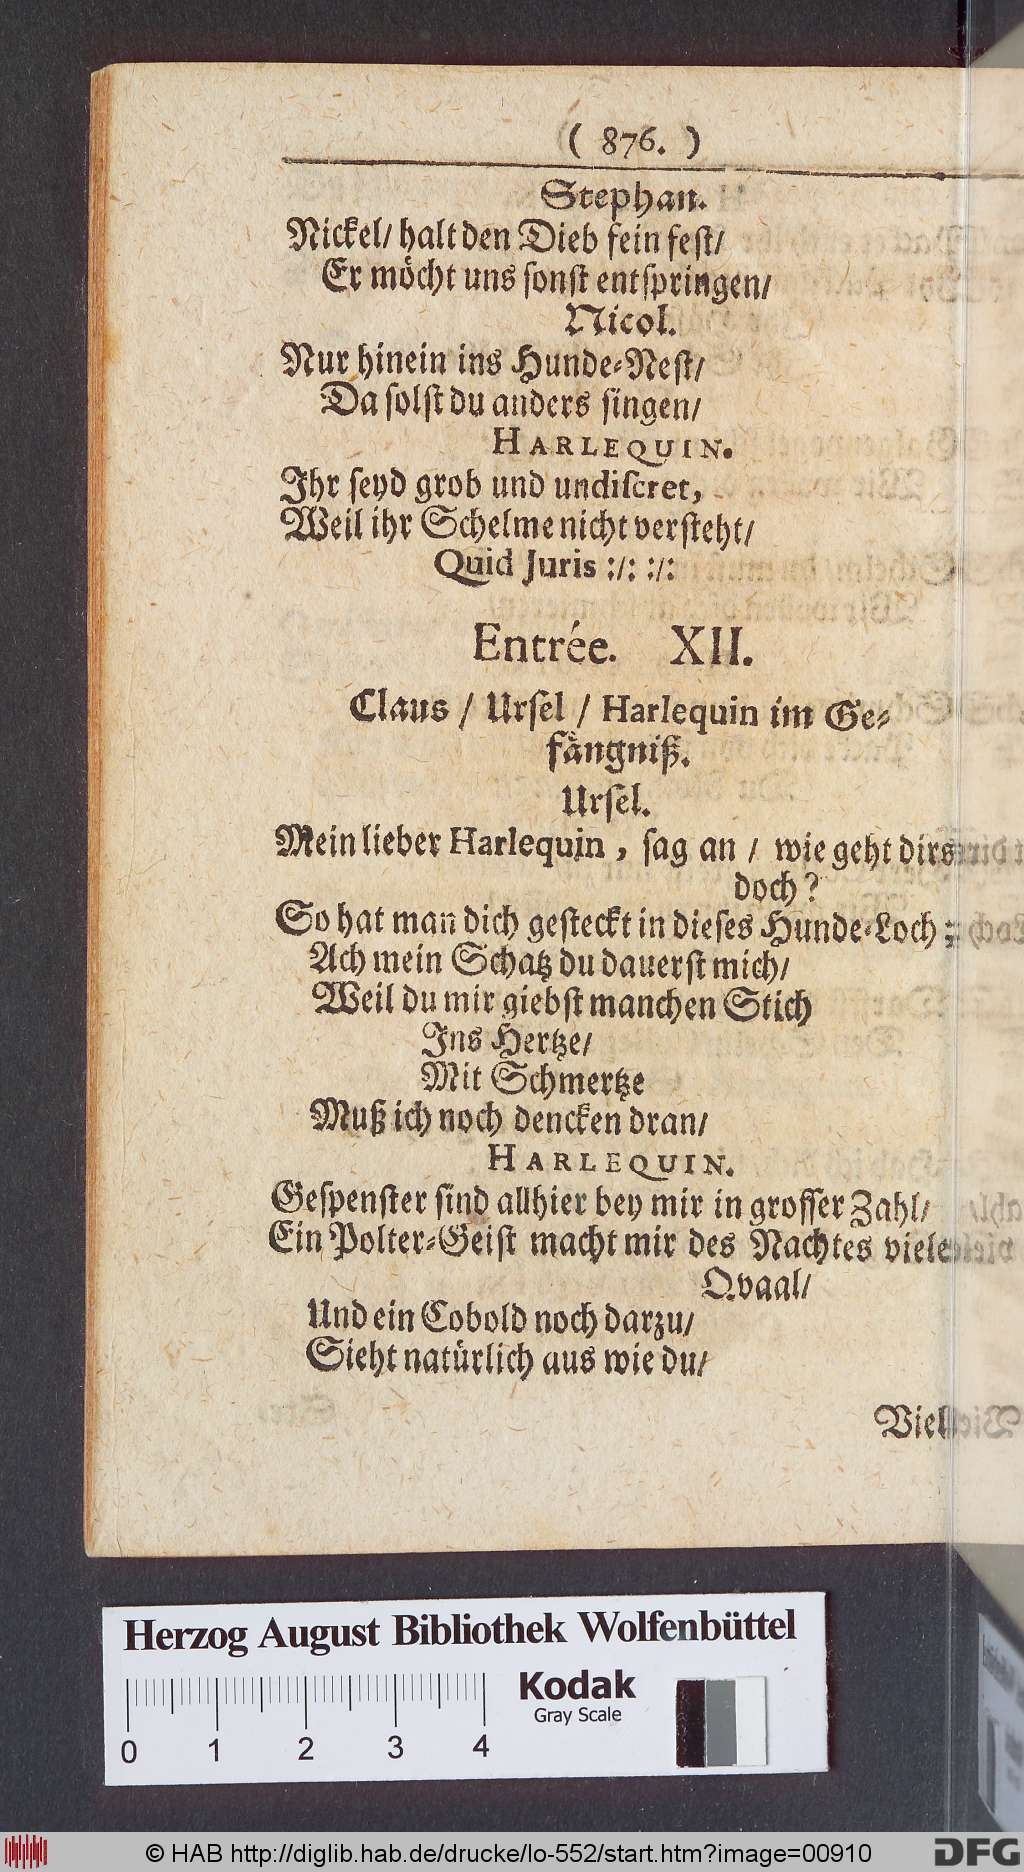 ( 876. )
Stephan.
Nickel/ halt den Dieb fein fest/
Er möcht uns sonst entspringen/
Nicol.
Nur hinein ins Hunde-Nest/
Da solst du anders singen/
HARLEQUIN.
Ihr seyd grob und undiscret,
Weil ihr Schelme nicht versteht/
Quid Juris :/: :/:
Entrée. XII.
Claus / Ursel / Harlequin im Ge-
fängniß.
Ursel.
Mein lieber Harlequin, sag an / wie geht dirs
doch?
So hat man dich gesteckt in dieses Hunde-Loch;
Ach mein Schatz du dauerst mich/
Weil du mir giebst manchen Stich
Ins Hertze/
Mit Schmertze
Muß ich noch dencken dran/
HARLEQUIN.
Gespenster sind allhier bey mir in grosser Zahl/
Ein Polter-Geist macht mir des Nachtes viele
Qvaal/
Und ein Cobold noch darzu/
Sieht natürlich aus wie du/
Viel
Herzog August Bibliothek Wolfenbüttel
Kodak
Gray Scale
0 1 2 3 4
© HAB http://diglib.hab.de/drucke/lo-552/start.htm?image=00910
DFG